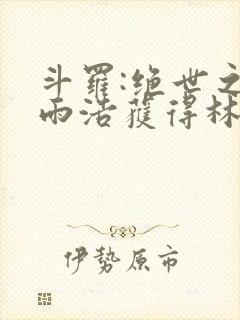 斗羅:绝世之
雨浩獲得林
伊勢原市